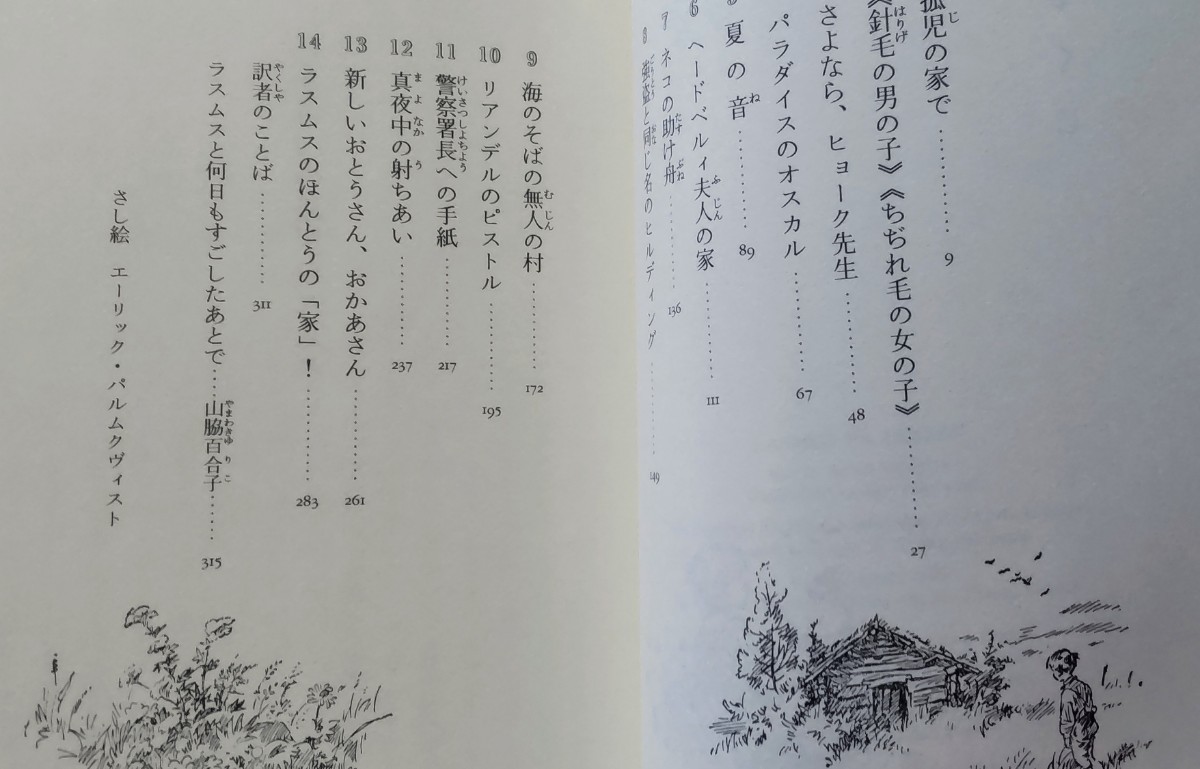 孤児の家で………… 9
《針毛の男の子》《ちぢれ毛の女の子》………… 27
さよなら、ヒョーク先生………… 48
パラダイスのオスカル………… 67
夏の音………… 89
6 ヘードベルィ夫人の家………… 111
7 ネコの助け舟………… 136
8 強盗と同じ名のヒルディング………… 149
9 海のそばの無人の村………… 172
10 リアンデルのピストル………… 195
11 警察署長への手紙………… 217
12 真夜中の射ちあい………… 237
13 新しいおとうさん、おかあさん………… 261
14 ラスムスのほんとうの「家」！………… 283
訳者のことば………… 311
ラスムスと何日もすごしたあとで……山脇百合子…… 315
さし絵 エーリック・パルムクヴィスト